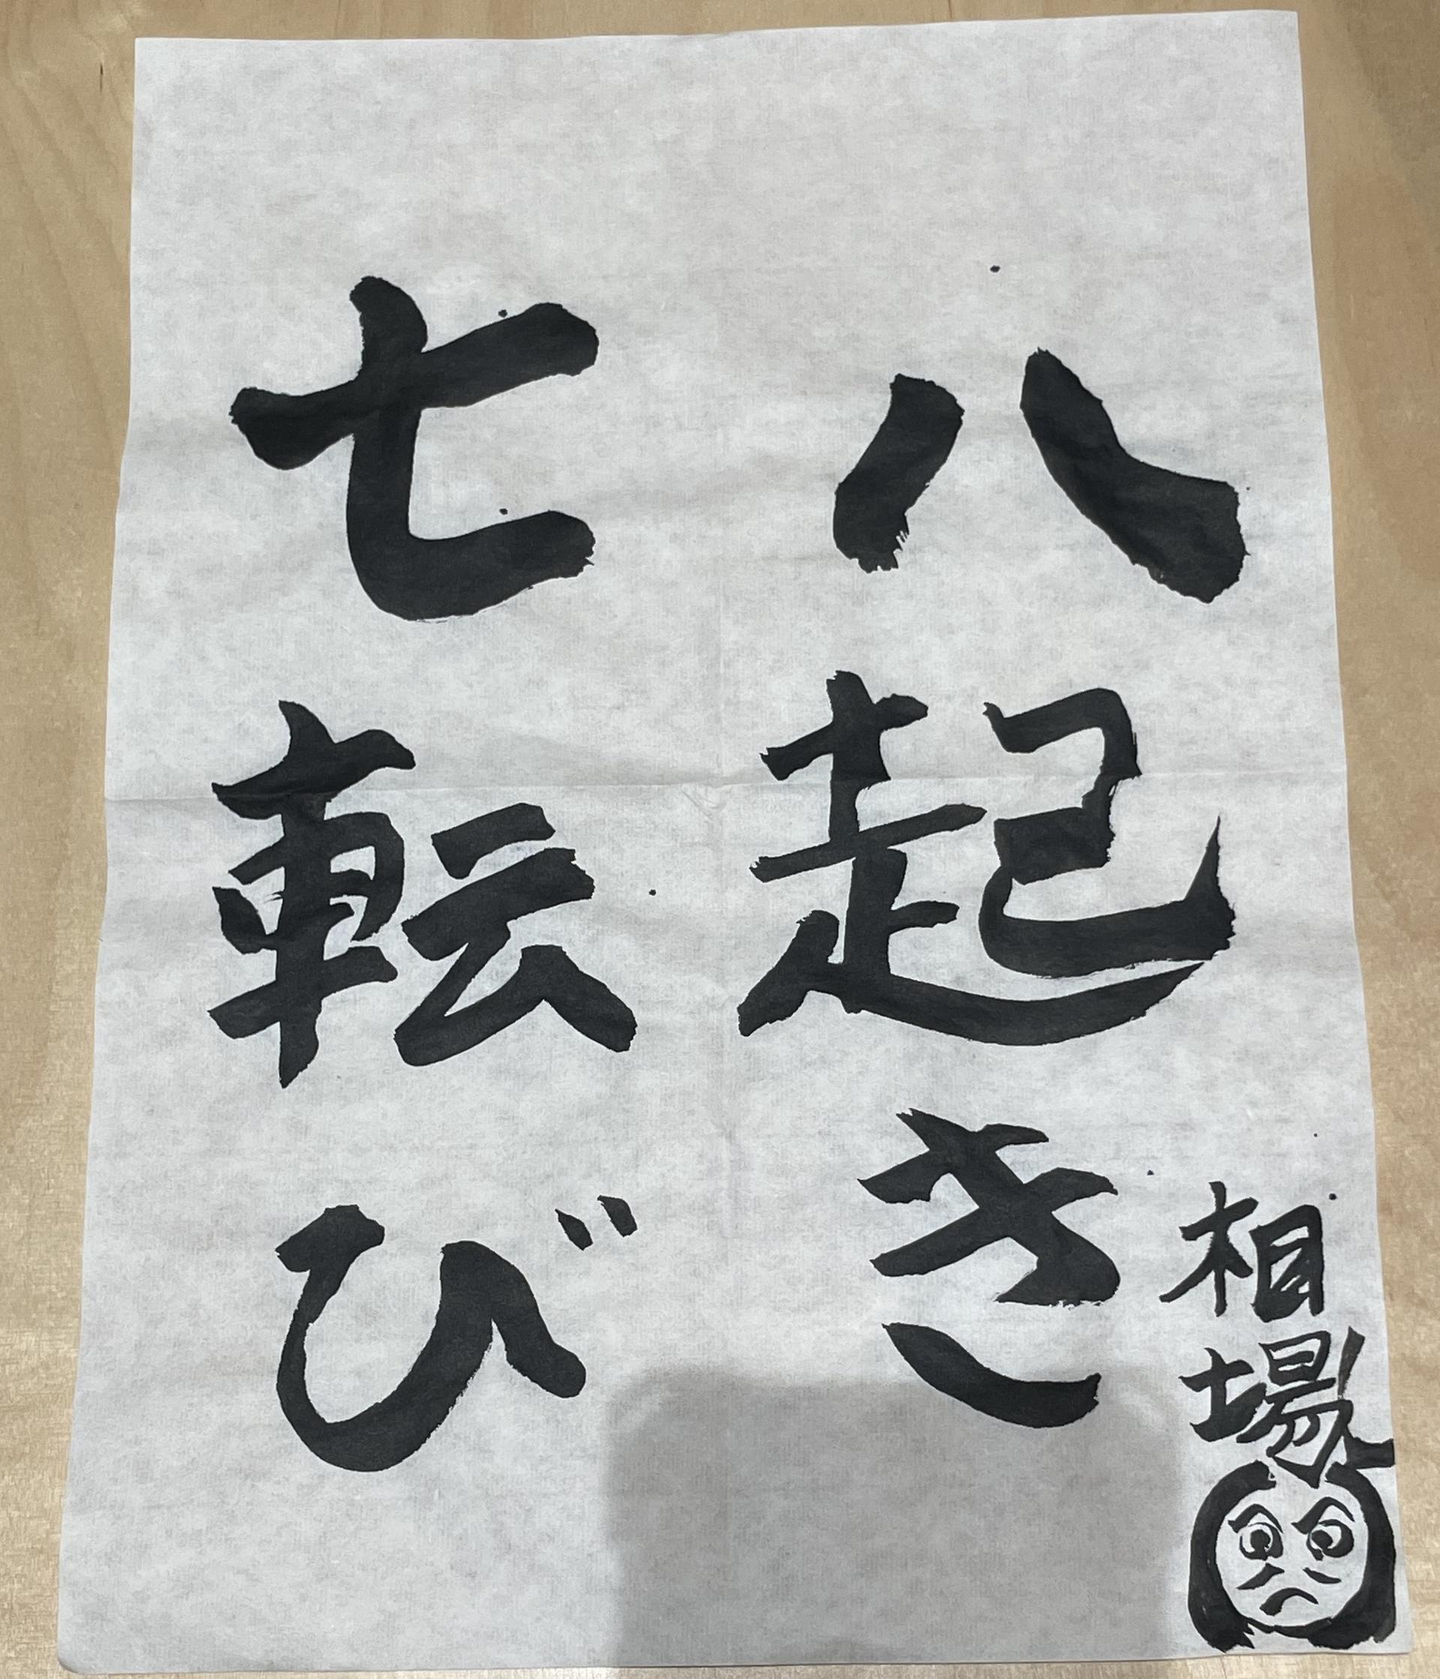 七転び
八起き
相場